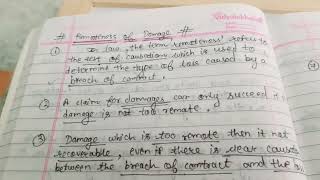 # Remoteness of Damage #
(1) In law, the term 'remoteness' refers to
the test of causation which is used to
determine the type of loss caused by a
breach of contract.
(2) A claim for dammages can only succeed if
damege is not too remate.
(3) Damage which is too remote then it not
recoverable, even if there is clear
between the breach of contract and the